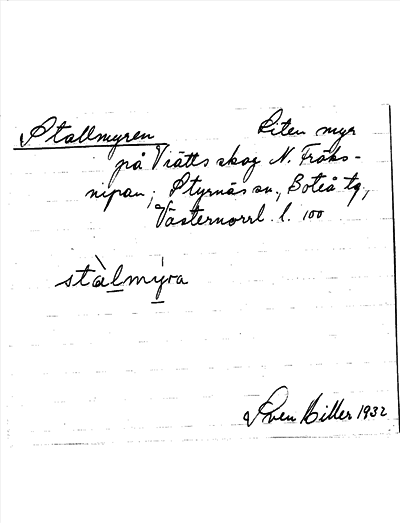 Stallmyren Liten myr
på Viätts skog N. Fräks-
nipan, Styrnäs sn., Boteå tg,
Västernorrl. l. 100
stàlmýra
Sven Hiller 1932